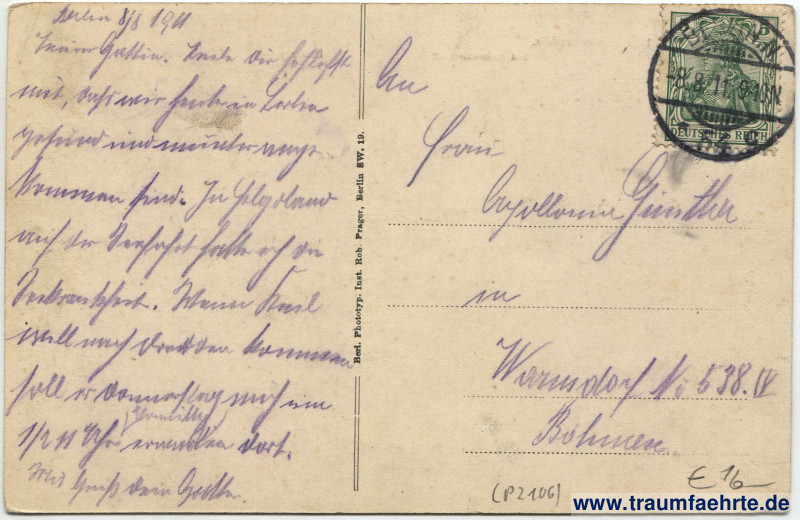 Berlin 8/8 1911
Teure Gattin. Teile Dir höflichst
mit, dass wir heute in Berlin
gesund und munter ange-
kommen sind. In Helgoland
auf der Seefahrt hatte ich die
Seekrankheit. Wenn Karl
will nach Dresden kommen
soll er Donnerstag mich um
1/2 11 Uhr
erwarten dort.
Mit Gruß dein Gatte.
Berl. Phototyp. Inst. Rob. Prager, Berlin SW. 19.
An
Frau
Apollonia Günther
in
Warnsdorf No 538. IV
Böhmen
BERLIN
-8.8.11. 9-10N
DEUTSCHES REICH
(P2106)
€ 16-
www.traumfaehrte.de